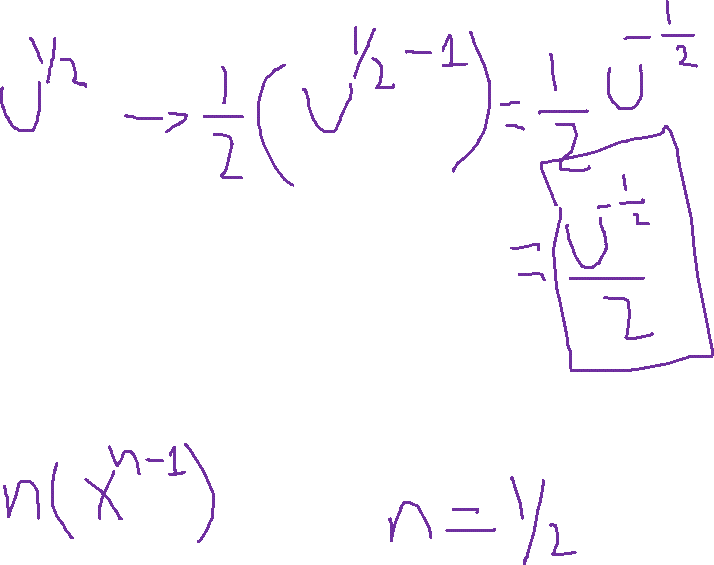 U^{1/2} → \frac{1}{2}(U^{1/2 - 1}) = \frac{1}{2} U^{-\frac{1}{2}}
= \frac{U^{-\frac{1}{2}}}{2}
n(x^{n-1})    n = 1/2